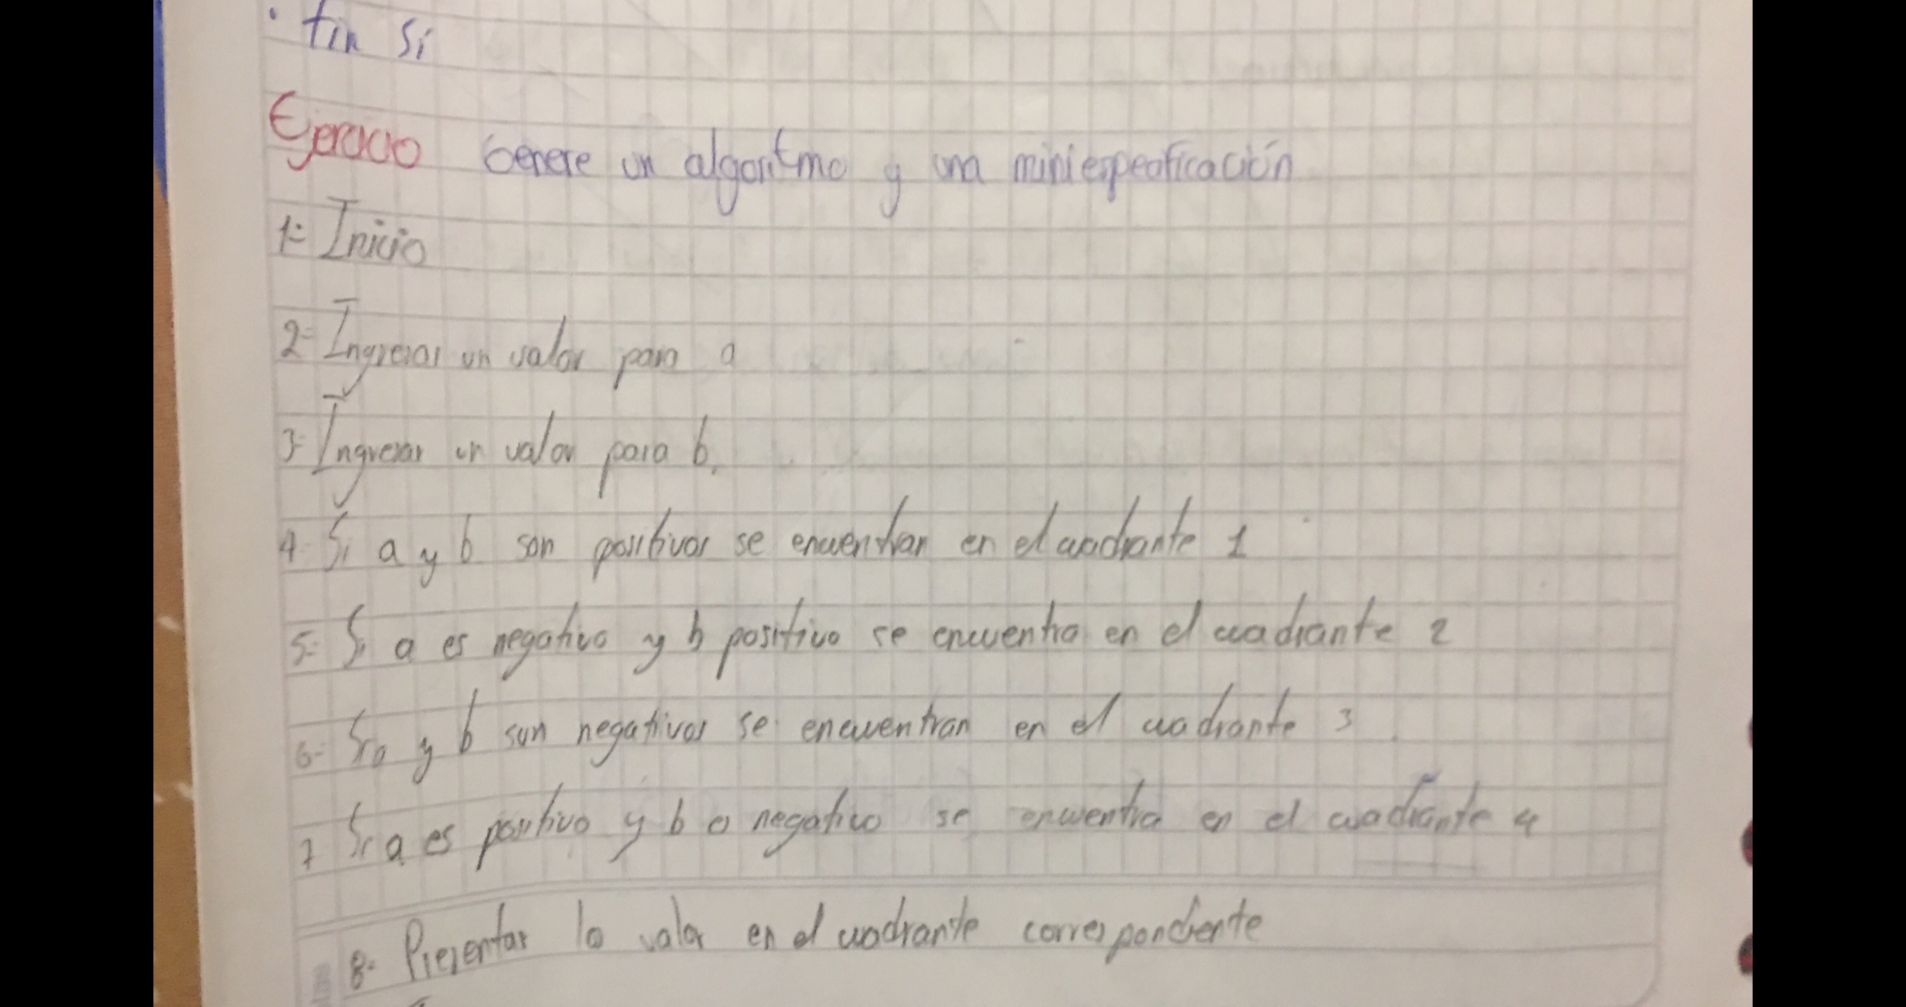 • fin Si
Ejercicio Genere un algoritmo y una miniespecificación
1= Inicio
2= Ingresar un valor para a
3= Ingresar un valor para b.
4- Si a y b son positivos se encuentran en el cuadrante 1
5- Si a es negativo y b positivo se encuentra en el cuadrante 2
6- Si a y b son negativos se encuentran en el cuadrante 3
7 Si a es positivo y b o negativo se encuentra en el cuadrante 4
8- Presentar lo valor en el cuadrante correspondiente